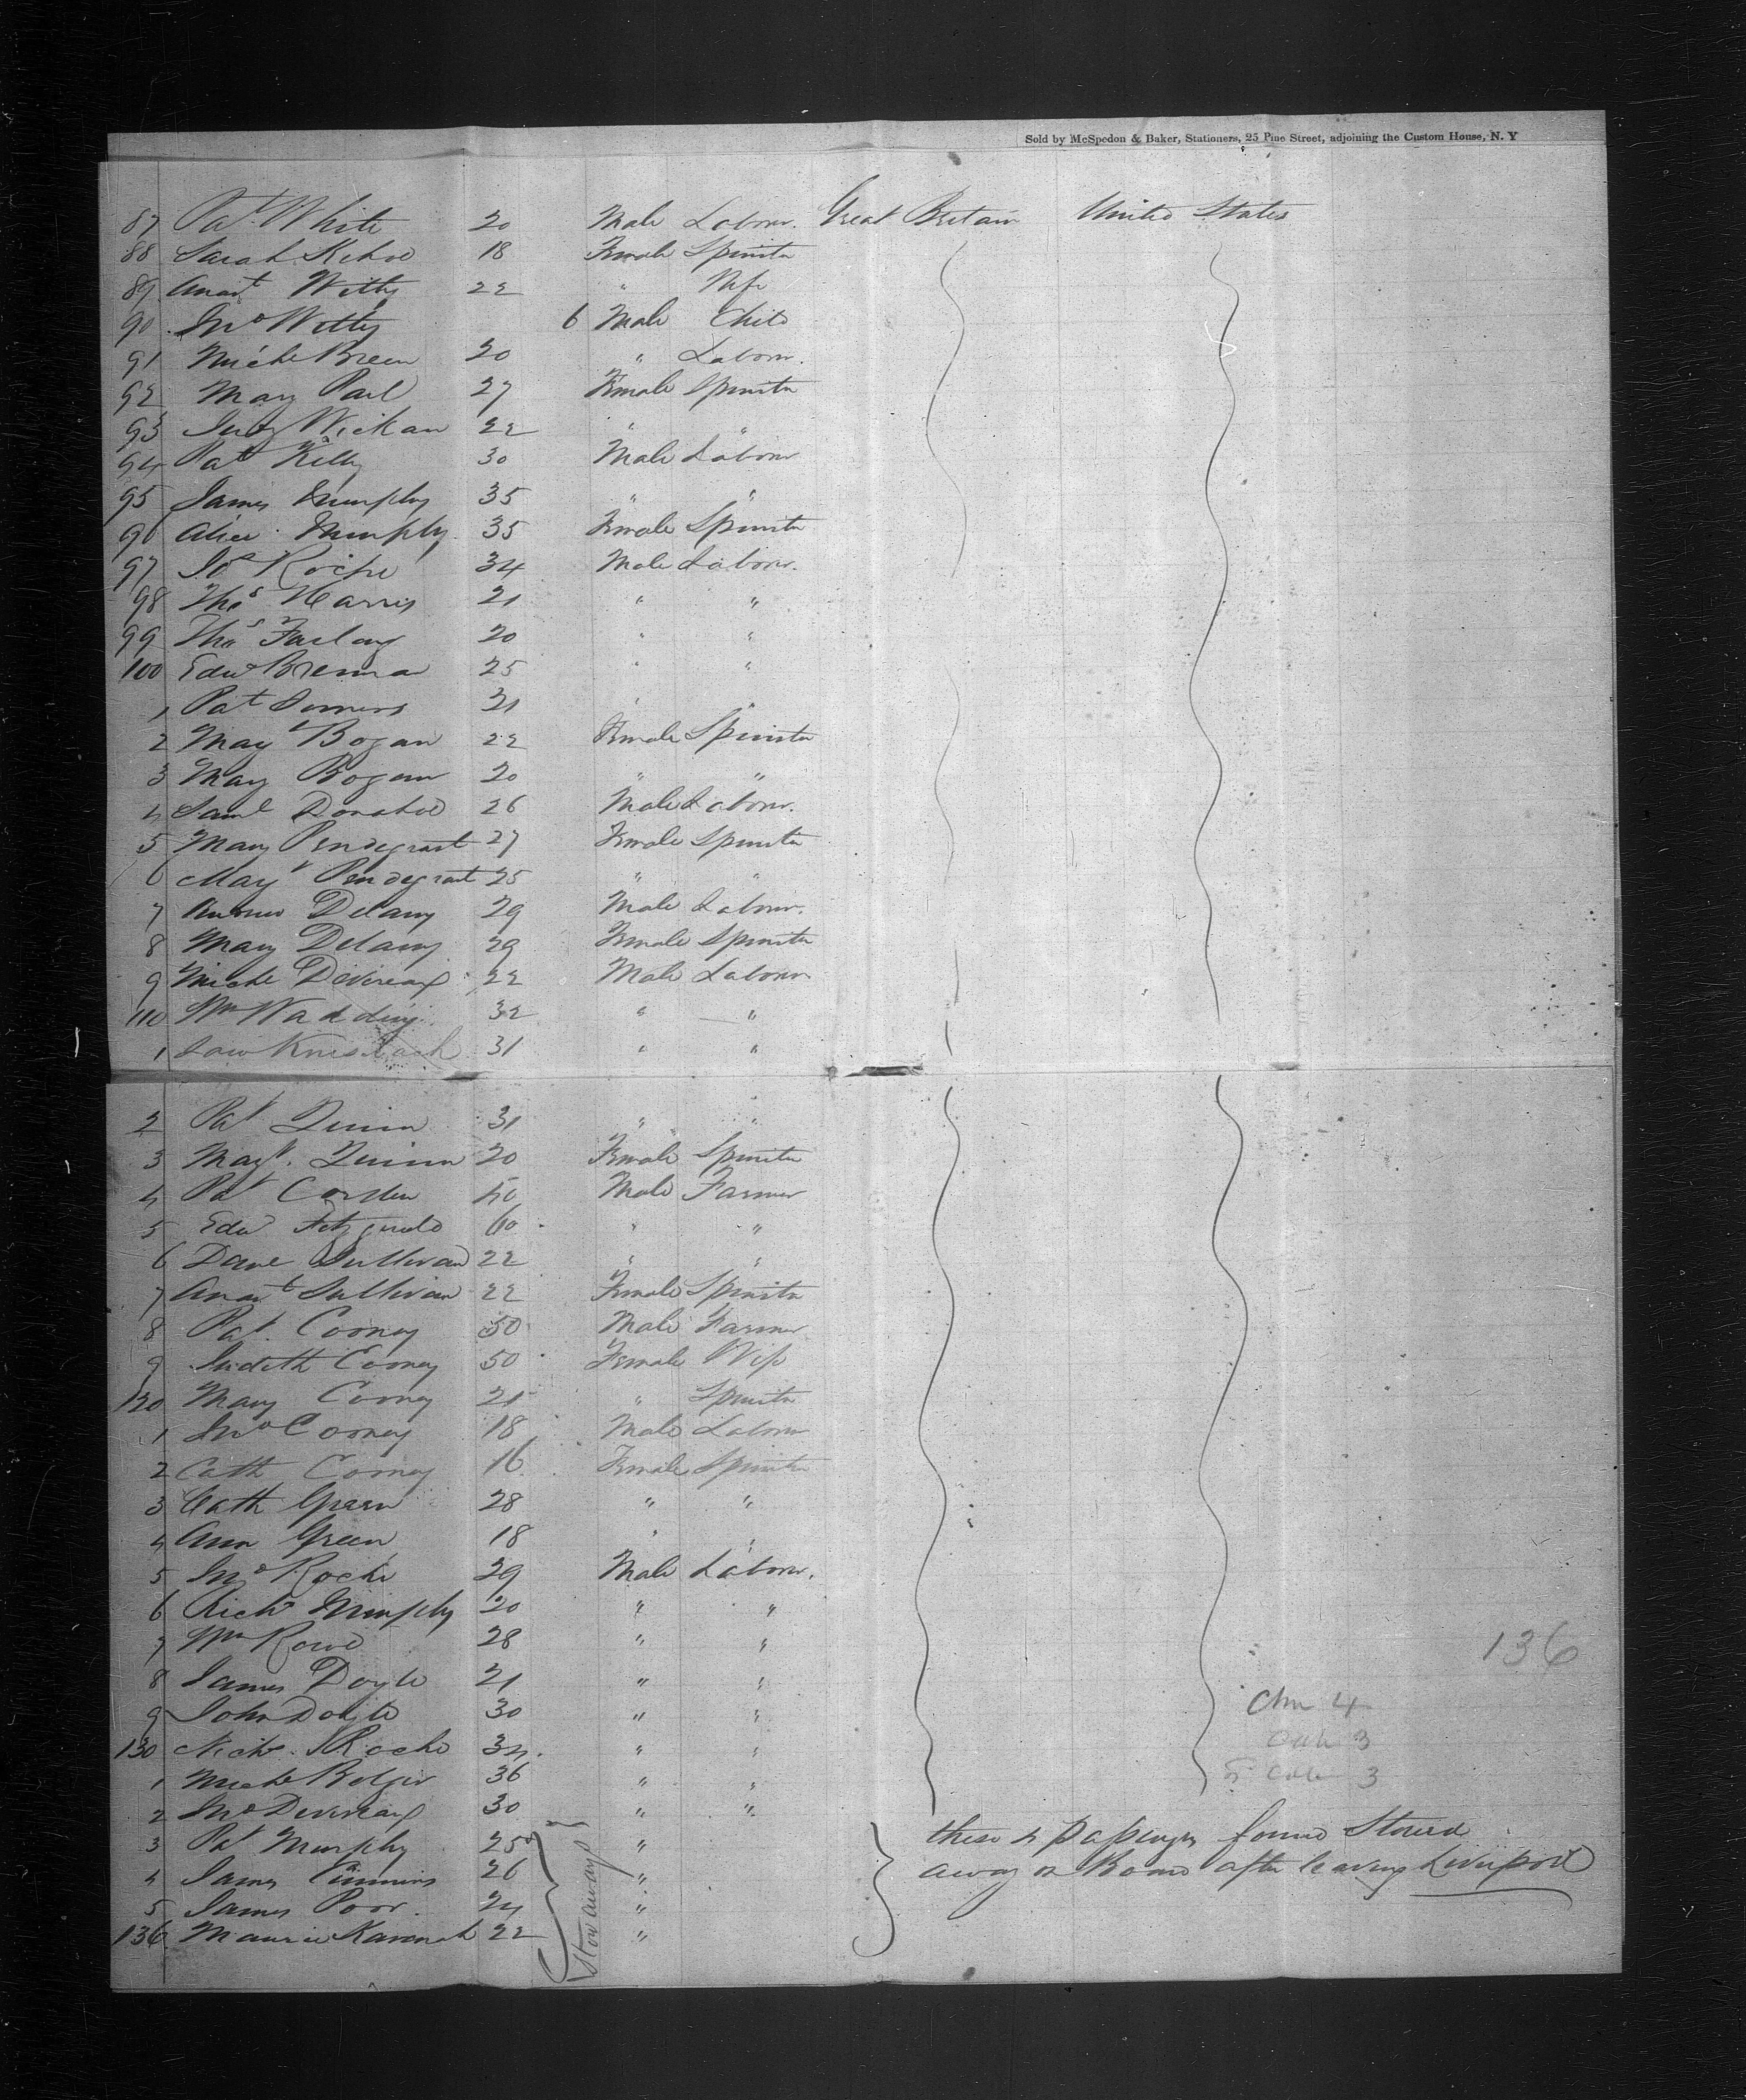 Sold by McSpedon & Baker, Stationers, 25 Pine Street, adjoining the Custom House, N. Y
87 Pat White 20 Male Labour. Great Britain United States
88 Sarah Kehoe 18 Female Spinster
89 Anast Witty 22 " Wife
90 Jno Witty 6 Male Child
91 Miche Breen 20 " Labour.
92 Mary Parl 27 Female Spinster
93 Judy Wickam 22 " "
94 Pat Kelly 30 Male Labour
95 James Murphy 35 " "
96 Alice Murphy 35 Female Spinster
97 Jo Roche 34 Male Labour.
98 Thos Harris 21 " "
99 Thos Furlong 20 " "
100 Edw Brennan 25 " "
1 Pat Somers 21 " "
2 Magt Bogan 22 Female Spinster
3 Mary Bogan 20 " "
4 Saml Donahoe 26 Male Labour.
5 Mary Pendegrast 27 Female Spinster
6 Magt Pendegrast 25 " "
7 Andrew Delany 29 Male Labour.
8 Mary Delany 29 Female Spinster
9 Miche Devereaux 22 Male Labour
110 Wm Wadding 32 " "
1 Law 31 " "
2 Pat Quinn 31 " "
3 Magt. Quinn 20 Female Spinster
4 Pat 50 Male Farmer
5 Edw Fitzgerald 60 " "
6 Dane Sullivan 22 " "
7 Anast Sullivan 22 Female Spinster
8 Pat. Cooney 50 Male Farmer
9 Judith Cooney 50 Female Wife
120 Mary Cooney 21 " Spinster
1 Jno Cooney 18 Male Labour
2 Cath Cooney 16 Female Spinster
3 Cath Green 28 " "
4 Ann Green 18 " "
5 Jno Roche 29 Male Labour.
6 Richd Murphy 20 " "
7 Wm Rowe 28 " "
136
8 James Doyle 21 " "
9 John Doyle 30 " "
Chn 4
130 Nichs. Roche 34. " "
3
1 Miche Bolger 36 " "
3
2 Jno Devereaux 30 " "
3 Pat Murphy 25 "
these 4 passengers found Stowed
4 James Cummins 26 "
away on Board after leaving Liverpool
5 James Poor. 24 "
136 Maurice Kavenah 22 "
Stowaways